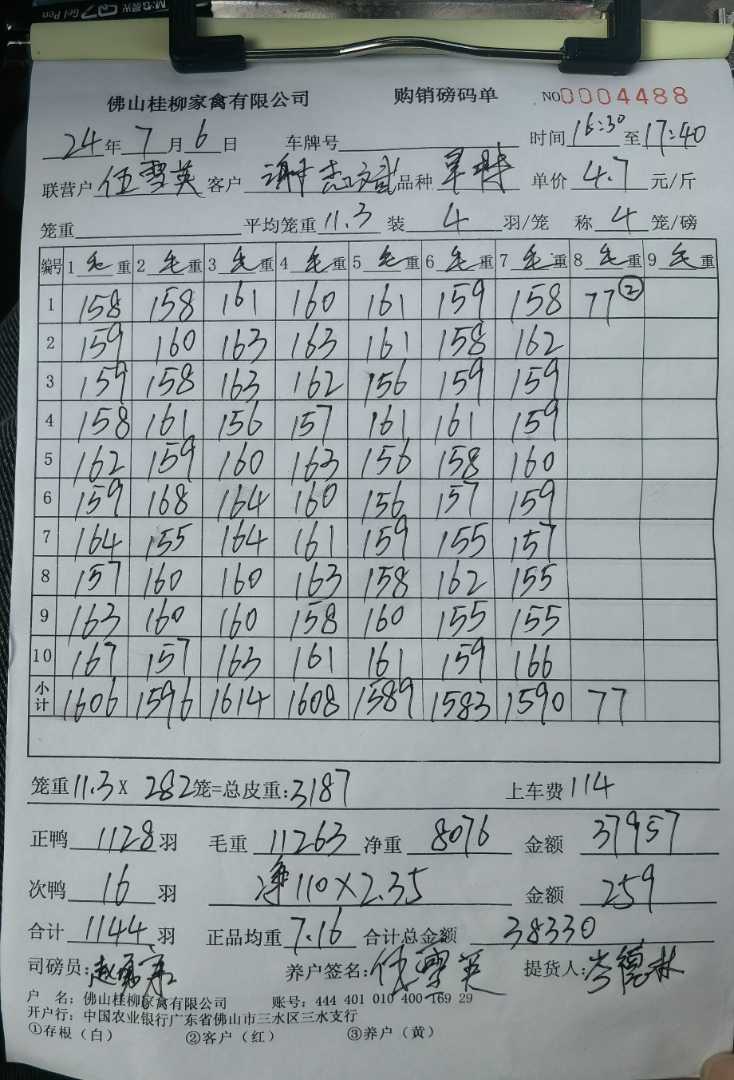 佛山桂柳家禽有限公司 购销磅码单 NO0004488
24年7月6日 车牌号 时间16:30至17:40
联营户 伍雪英 客户 谢志斌 品种 单价 4.7 元/斤
笼重 平均笼重 11.3 装 4 羽/笼 称 4 笼/磅
编号 1 毛重 2 毛重 3 毛重 4 毛重 5 毛重 6 毛重 7 毛重 8 毛重 9 毛重
1 158 158 161 160 161 159 158 77②
2 159 160 163 163 161 158 162
3 159 158 163 162 156 159 159
4 158 161 156 157 161 161 159
5 162 159 160 163 156 158 160
6 159 168 164 160 156 157 159
7 164 155 164 161 159 155 157
8 157 160 160 163 158 162 155
9 163 160 160 158 160 155 155
10 167 157 163 161 161 159 166
小计 1606 1596 1614 1608 1589 1583 1590 77
笼重11.3X 282笼=总皮重:3187 上车费114
正鸭 1128 羽 毛重 11263 净重 8076 金额 37957
次鸭 16 羽 净110×2.35 金额 259
合计 1144 羽 正品均重 7.16 合计总金额 38330
司磅员: 养户签名:伍雪英 提货人:岑德林
户 名:佛山桂柳家禽有限公司 账号:444 401 010 400 169 29
开户行:中国农业银行广东省佛山市三水区三水支行
①存根(白) ②客户(红) ③养户(黄)